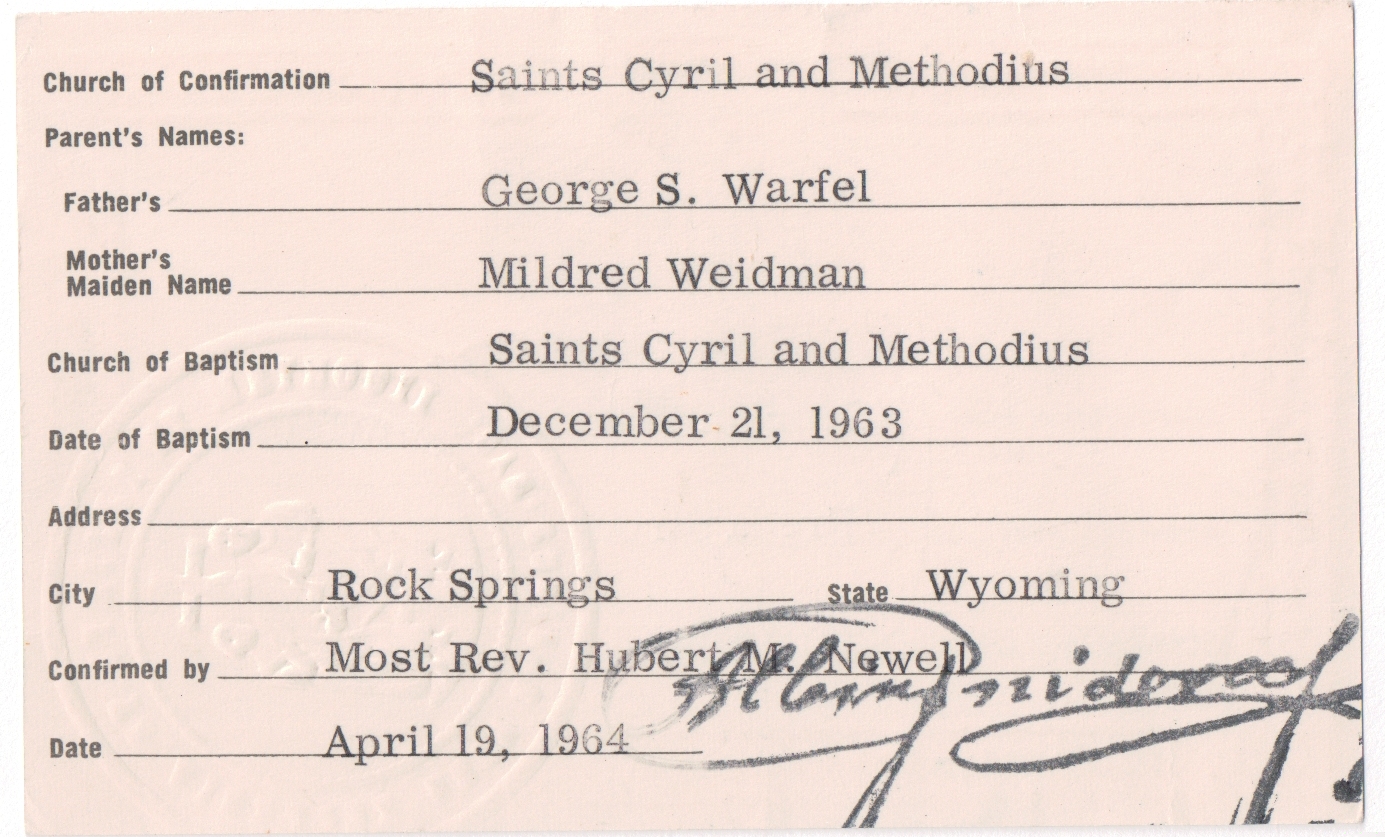 Church of Confirmation Saints Cyril and Methodius
Parent's Names:
Father's George S. Warfel
Mother's
Maiden Name Mildred Weidman
Church of Baptism Saints Cyril and Methodius
Date of Baptism December 21, 1963
Address
City Rock Springs State Wyoming
Confirmed by Most Rev. Hubert M. Newell
Date April 19, 1964